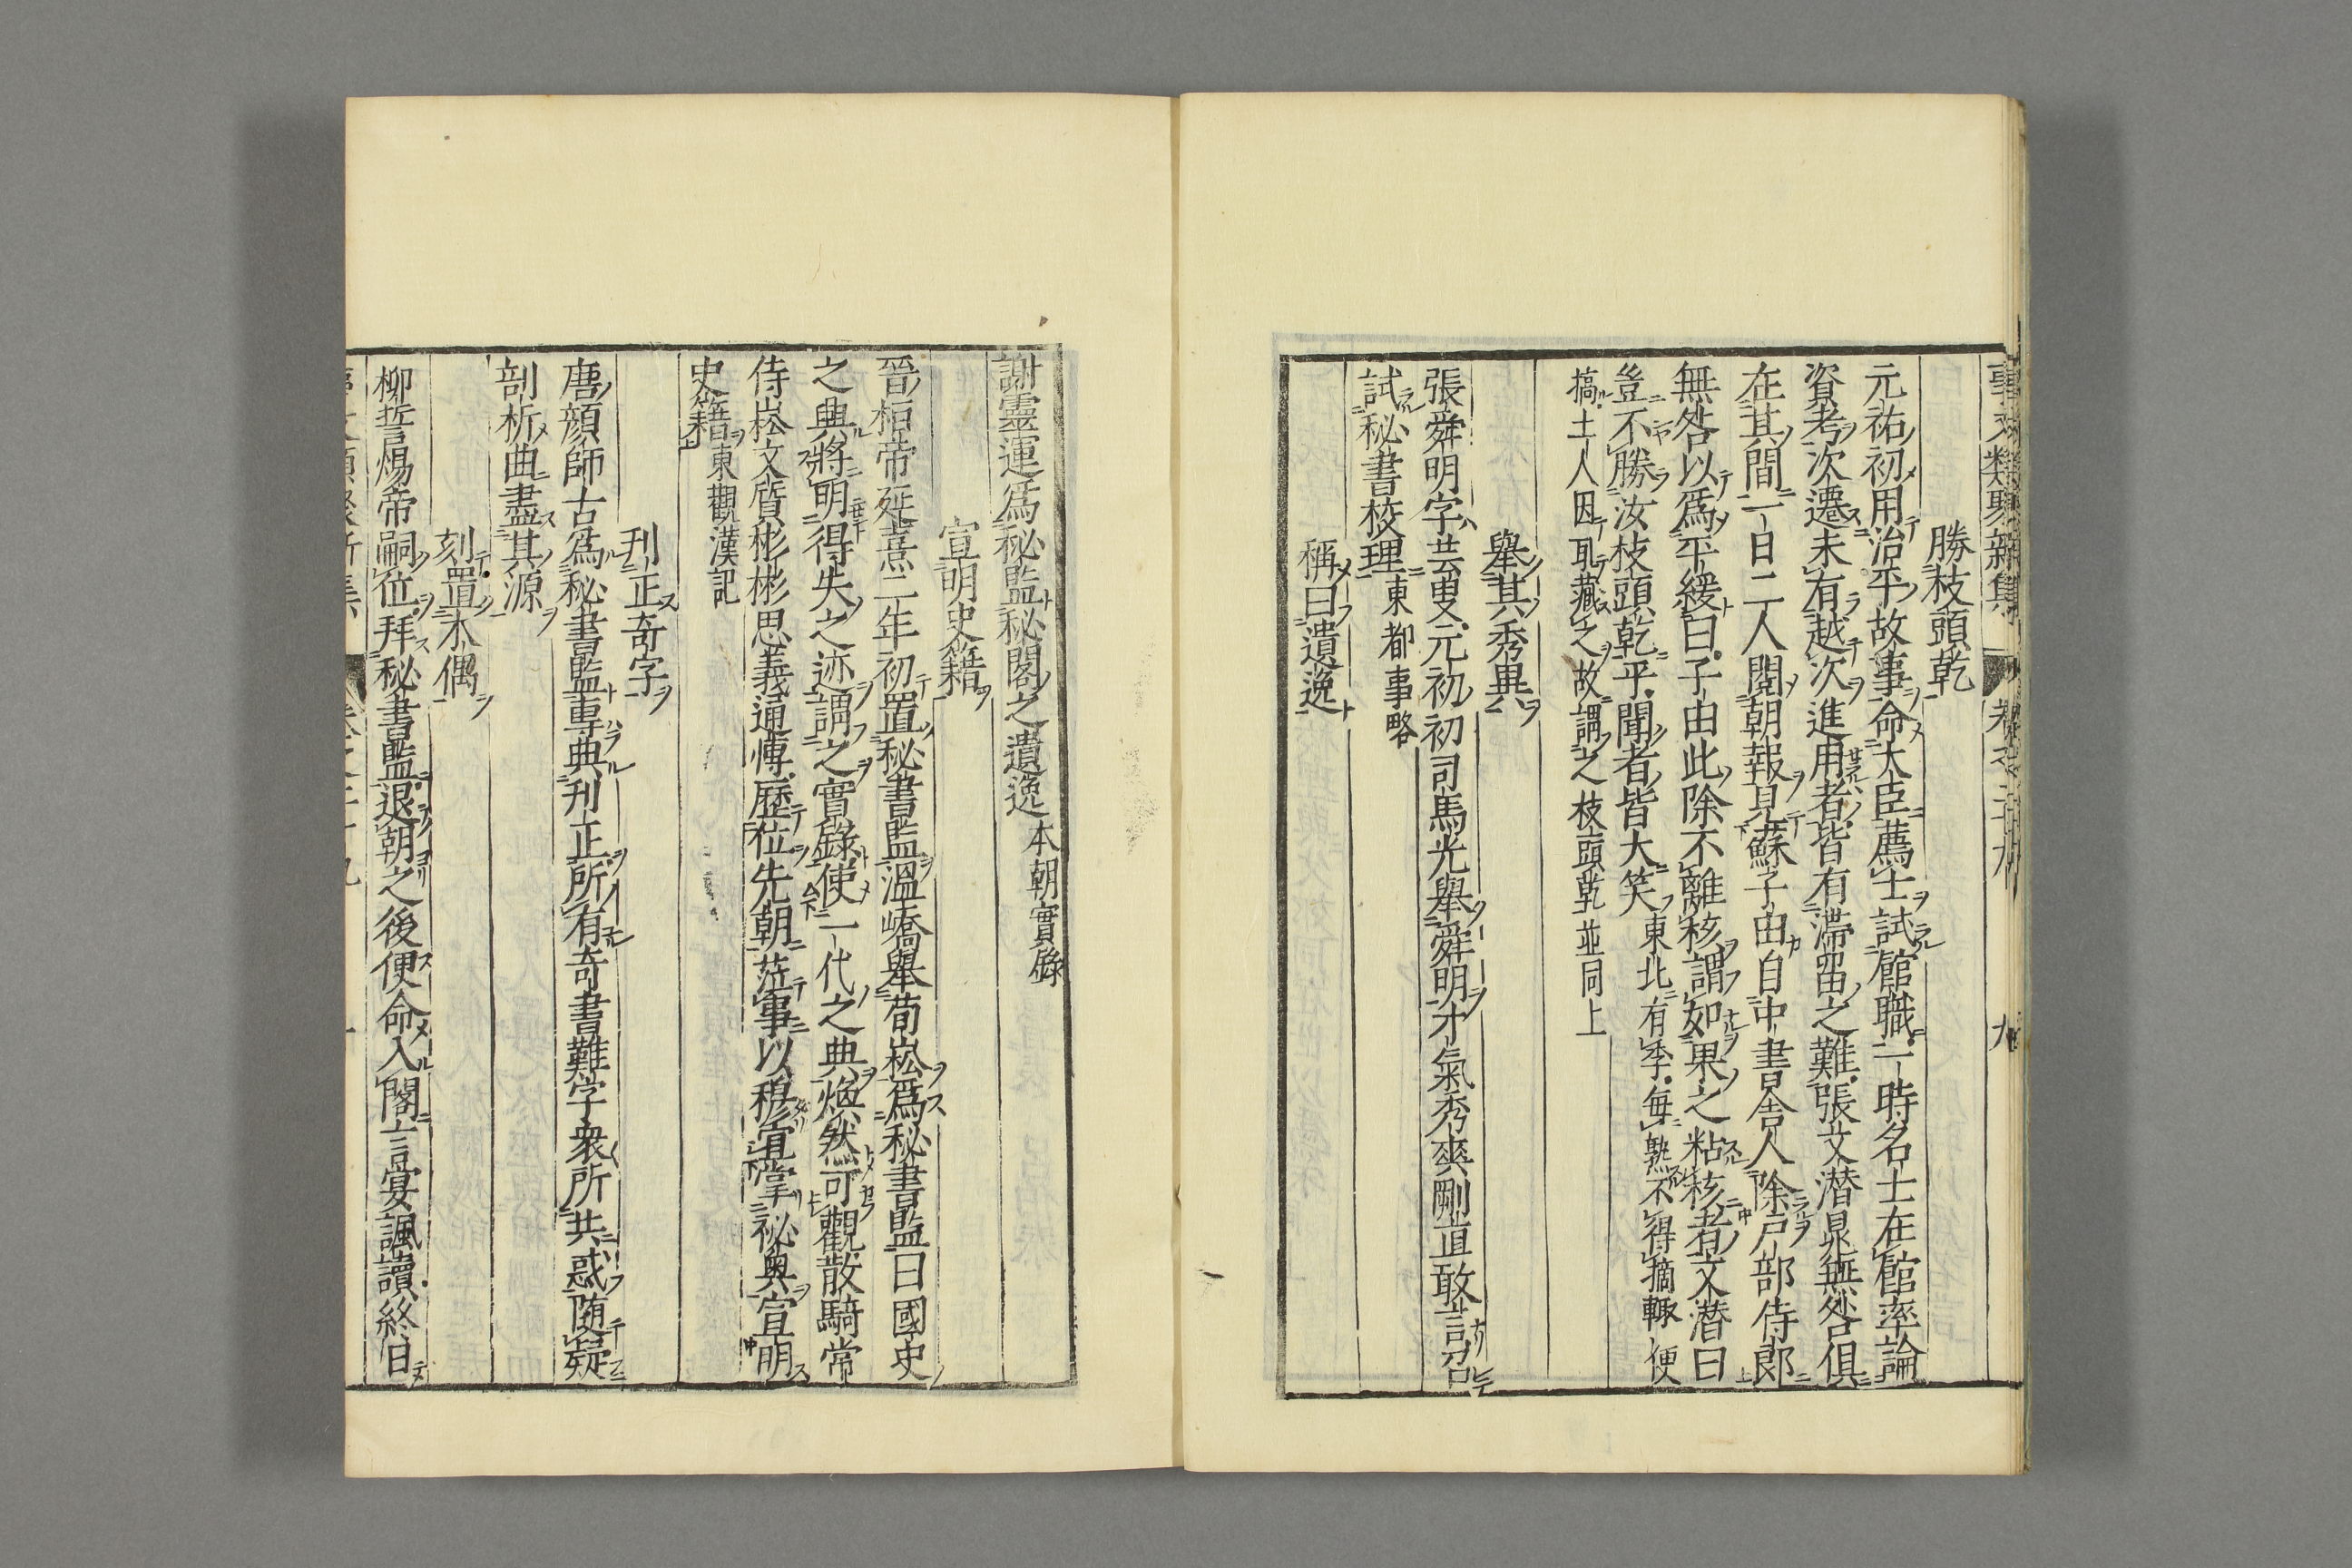 事文類聚新集 卷之二十九 九
勝枝頭乾
元祐初用治平故事命大臣薦士試館職一時名士在館率論
資考次遷未有越次進用者皆有滯畱之難張文潛晁無咎俱
在其間一日二人閱朝報見蘇子由自中書舍人除戶部侍郎
無咎以爲平緩曰子由此除不離核謂如果之粘核者文潛曰
豈不勝汝枝頭乾乎聞者皆大笑東北有李每熟不得摘輒便
搞土人因取藏之故謂之枝頭乾並同上
舉其秀異
張舜明字芸叟元初初司馬光舉舜明才氣秀爽剛直敢言召
試秘書校理東都事略
稱曰遺逸
謝靈運爲秘監秘閣之遺逸本朝實錄
宣明史籍
晉桓帝延熹二年初置秘書監溫嶠舉荀崧爲秘書監曰國史
之興將明得失之迹謂之實錄使一代之典煥然可觀散騎常
侍崧文質彬彬思義通博歷位先朝莅事以穆宜掌祕奧宣明
史籍東觀漢記
刊正奇字
唐顏師古爲秘書監専典刊正所有奇書難字衆所共惑随疑
剖析曲盡其源
刻置木偶
柳䛒煬帝嗣位拜秘書監退朝之後便命入閣言宴諷讀終日